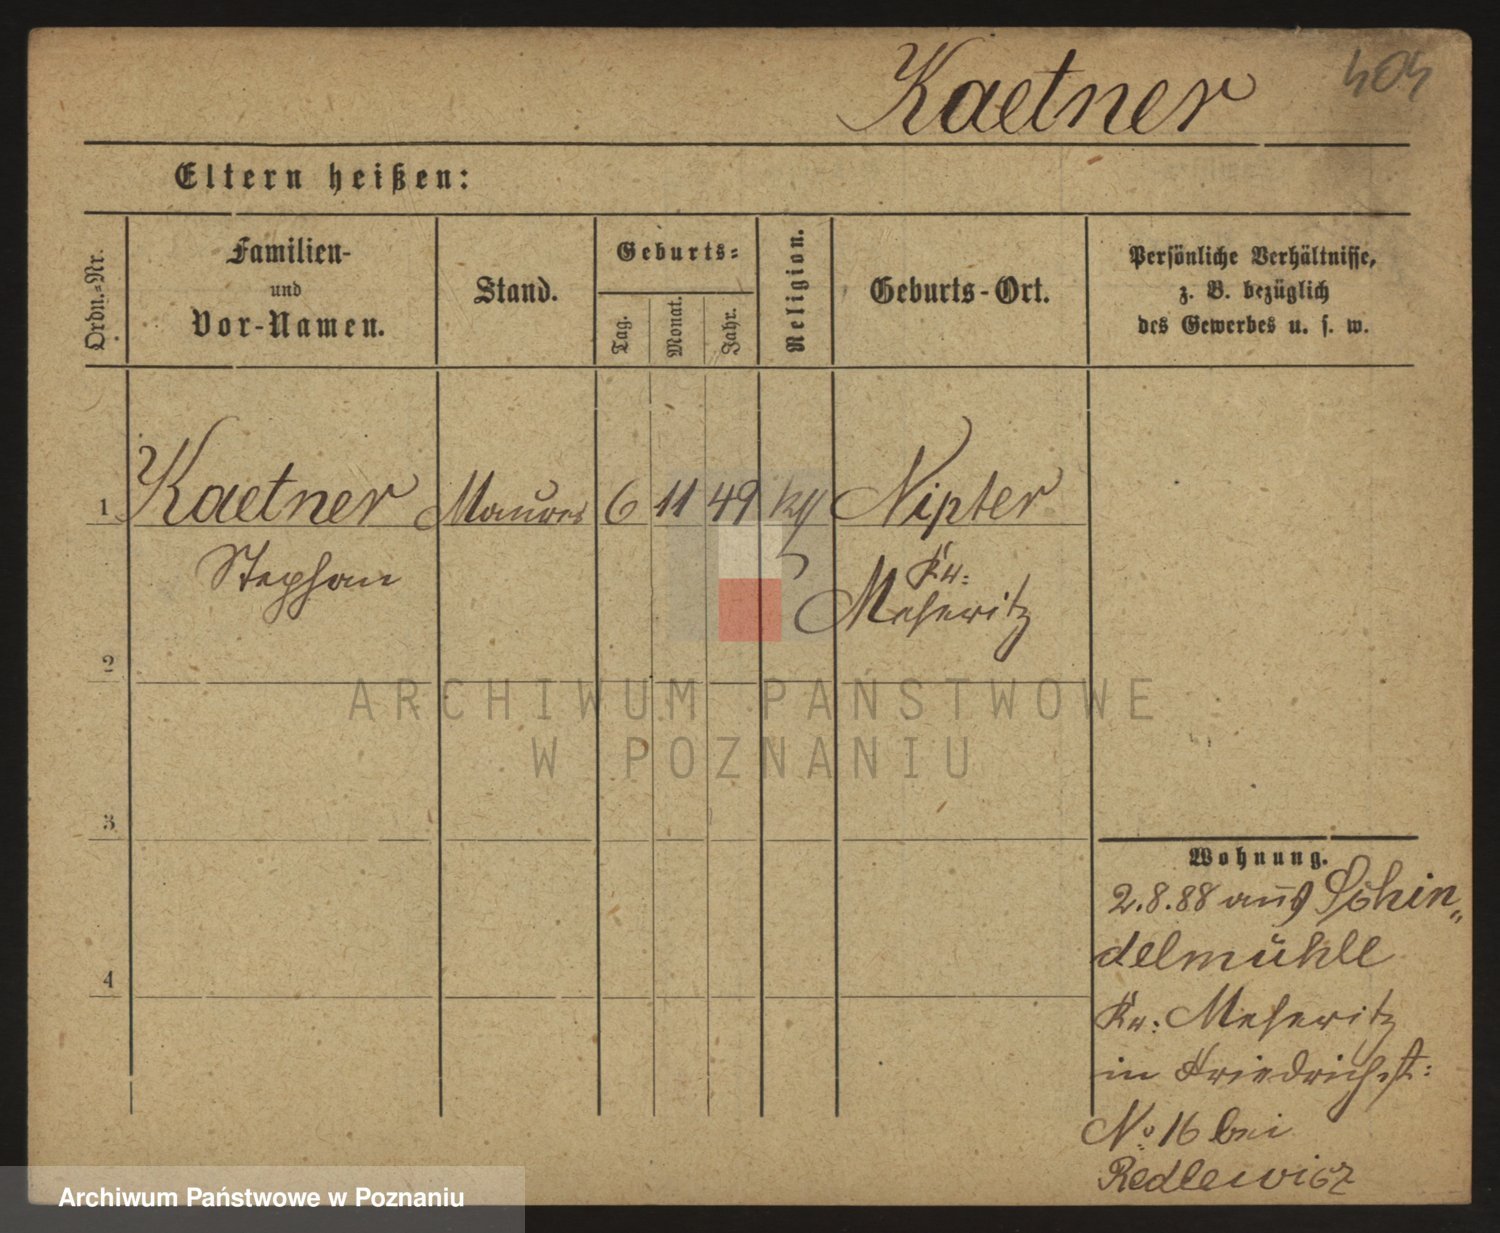 Kaetner
404
Eltern heißen:
Ordn.-Nr.
Familien-
und
Vor-Namen.
Stand.
Geburts-
Tag.
Monat.
Jahr.
Religion.
Geburts-Ort.
Persönliche Verhältnisse,
z. B. bezüglich
des Gewerbes u. s. w.
1 Kaetner Maurer 6 11 49 Nipter
Stephan
Kr:
Meseritz
2
3
4
Wohnung.
2.8.88 aus Schin„
delmühle
Kr: Meseritz
in Friedrichst:
No 16 bei
Redlewicz
ARCHIWUM PAŃSTWOWE
W POZNANIU
Archiwum Państwowe w Poznaniu